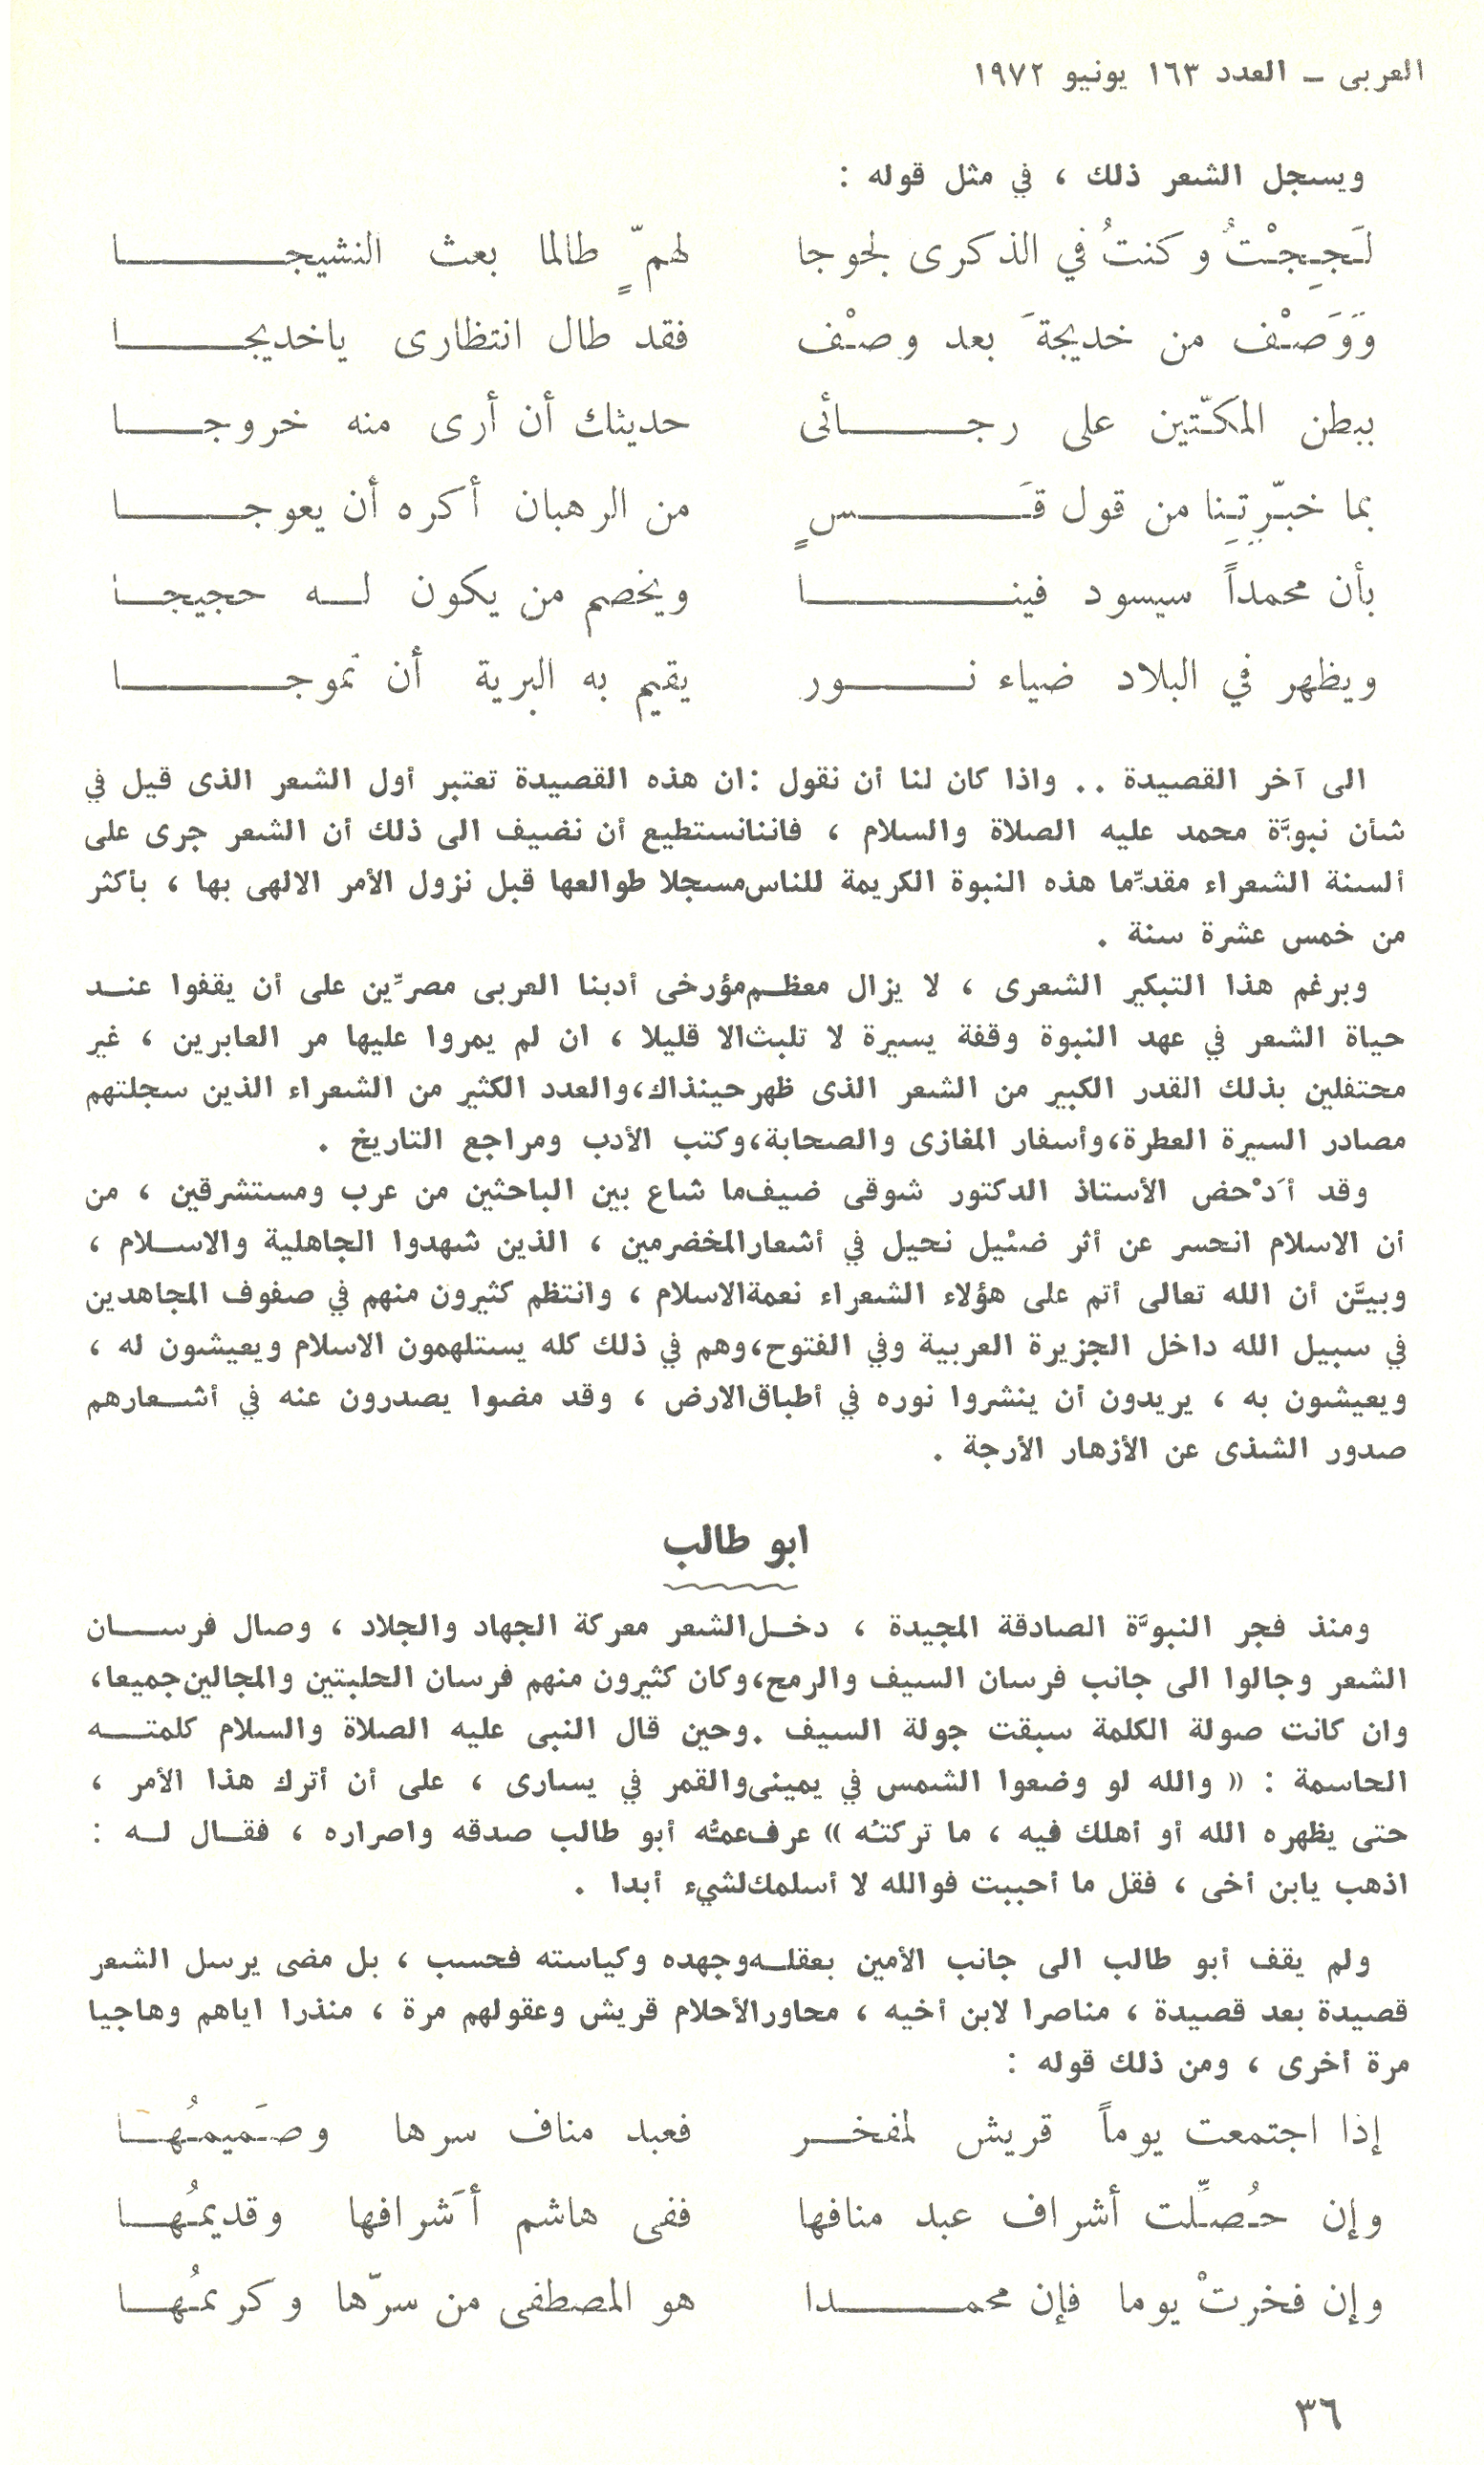 العربى ــ العدد ١٦٣ يونيو ١٩٧٢
ويسجل الشعر ذلك ، في مثل قوله :
لَجِجْتُ وكنتُ في الذكرى لجوجا لهمٍّ طالما بعث النشيجا
وَوَصْف من خديجةَ بعد وصْف فقد طال انتظارى ياخديجا
ببطن المكّتين على رجائى حديثك أن أرى منه خروجا
بما خبّرتِنا من قول قَسٍ من الرهبان أكره أن يعوجا
بأن محمداً سيسود فينا ويخصم من يكون له حجيجا
ويظهر في البلاد ضياء نور يقيم به البرية أن تموجا
الى آخر القصيدة .. واذا كان لنا أن نقول :ان هذه القصيدة تعتبر أول الشعر الذى قيل في
شأن نبوَّة محمد عليه الصلاة والسلام ، فاننانستطيع أن نضيف الى ذلك أن الشعر جرى على
ألسنة الشعراء مقدِّما هذه النبوة الكريمة للناس مسجلا طوالعها قبل نزول الأمر الالهى بها ، بأكثر
من خمس عشرة سنة .
وبرغم هذا التبكير الشعرى ، لا يزال معظم مؤرخى أدبنا العربى مصرِّين على أن يقفوا عند
حياة الشعر في عهد النبوة وقفة يسيرة لا تلبث الا قليلا ، ان لم يمروا عليها مر العابرين ، غير
محتفلين بذلك القدر الكبير من الشعر الذى ظهر حينذاك، والعدد الكثير من الشعراء الذين سجلتهم
مصادر السيرة العطرة، وأسفار المغازى والصحابة، وكتب الأدب ومراجع التاريخ .
وقد أَدْحض الأستاذ الدكتور شوقى ضيف ما شاع بين الباحثين من عرب ومستشرقين ، من
أن الاسلام انحسر عن أثر ضئيل نحيل في أشعار المخضرمين ، الذين شهدوا الجاهلية والاسلام ،
وبيَّن أن الله تعالى أتم على هؤلاء الشعراء نعمة الاسلام ، وانتظم كثيرون منهم في صفوف المجاهدين
في سبيل الله داخل الجزيرة العربية وفي الفتوح، وهم في ذلك كله يستلهمون الاسلام ويعيشون له ،
ويعيشون به ، يريدون أن ينشروا نوره في أطباق الارض ، وقد مضوا يصدرون عنه في أشعارهم
صدور الشذى عن الأزهار الأرجة .
ابو طالب
ومنذ فجر النبوَّة الصادقة المجيدة ، دخل الشعر معركة الجهاد والجلاد ، وصال فرسان
الشعر وجالوا الى جانب فرسان السيف والرمح، وكان كثيرون منهم فرسان الحلبتين والمجالين جميعا،
وان كانت صولة الكلمة سبقت جولة السيف . وحين قال النبى عليه الصلاة والسلام كلمته
الحاسمة : « والله لو وضعوا الشمس في يمينى والقمر في يسارى ، على أن أترك هذا الأمر ،
حتى يظهره الله أو أهلك فيه ، ما تركتُه » عرف عمُّه أبو طالب صدقه واصراره ، فقال له :
اذهب يابن أخى ، فقل ما أحببت فوالله لا أسلمك لشيء أبدا .
ولم يقف أبو طالب الى جانب الأمين بعقله وجهده وكياسته فحسب ، بل مضى يرسل الشعر
قصيدة بعد قصيدة ، مناصرا لابن أخيه ، محاور الأحلام قريش وعقولهم مرة ، منذرا اياهم وهاجيا
مرة أخرى ، ومن ذلك قوله :
إذا اجتمعت يوماً قريش لمفخر فعبد مناف سرها وصَميمُها
وإن حُصِّلت أشراف عبد منافها ففى هاشم أَشرافها وقديمُها
وإن فخرتْ يوما فإن محمدا هو المصطفى من سرّها وكريمُها
٣٦